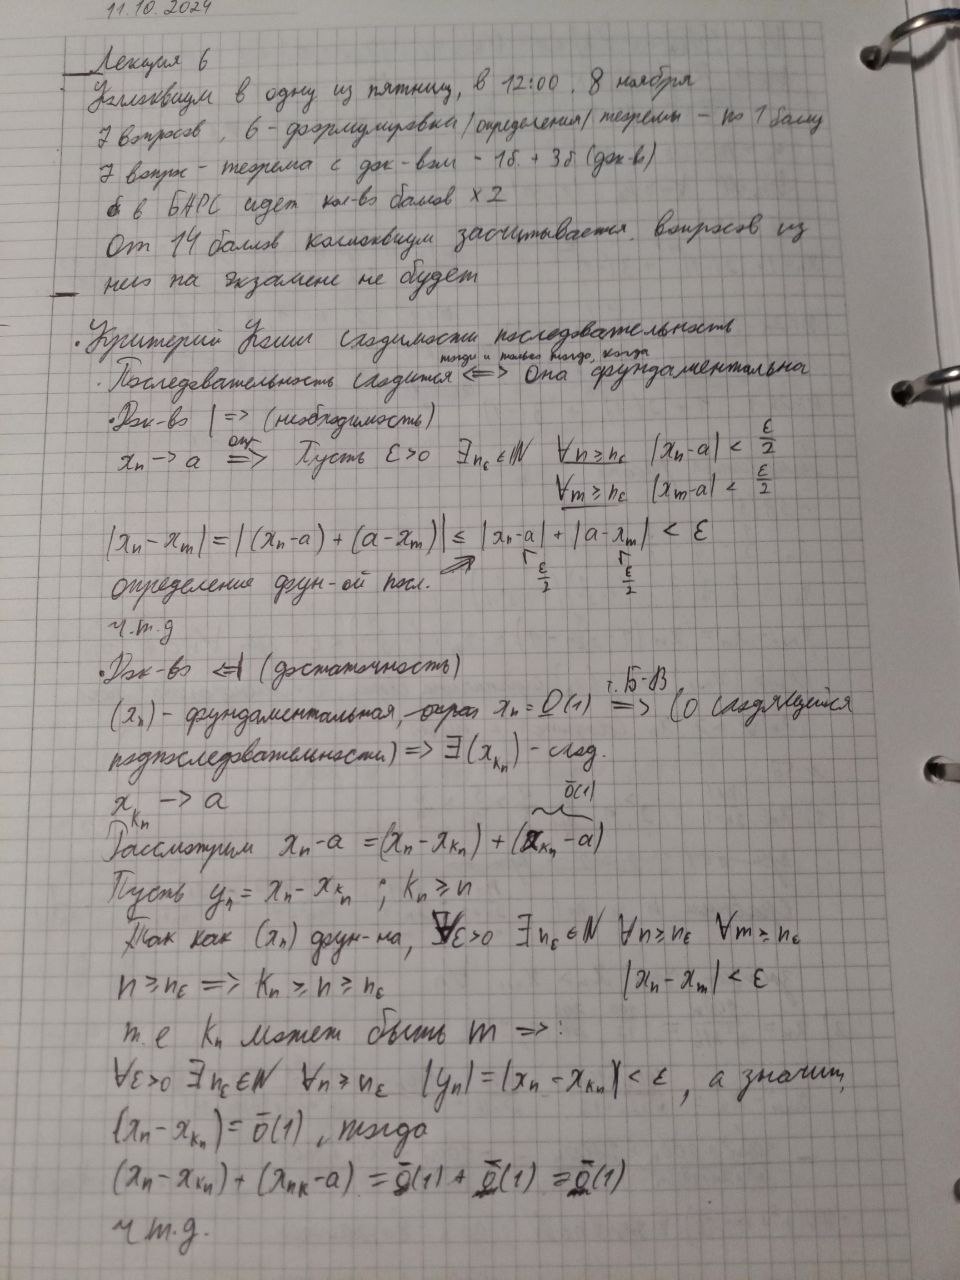 11.10.2024
Лекция 6
Коллоквиум в одну из пятниц, в 12:00, 8 ноября
7 вопросов, 6 - формулировки/определения/теоремы - по 1 баллу
7 вопрос - теорема с док-вом - 1б. + 3б (док-в)
в БАРС идет кол-во баллов x 2
От 14 баллов коллоквиум засчитывается, вопросов из
него на экзамене не будет
• Критерий Коши сходимости последовательность
тогда и только тогда, когда
• Последовательность сходится <=> Она фундаментальна
• Док-во | => (необходимость)
xₙ -> a =>(опр) Пусть ε>0 ∃nε∈N ∀n≥nε |xₙ-a| < ε/2
∀m≥nε |xₘ-a| < ε/2
|xₙ-xₘ| = |(xₙ-a) + (a-xₘ)| ≤ |xₙ-a| + |a-xₘ| < ε
ε/2 ε/2
определение фун-ой посл.
ч.т.д
• Док-во <=| (достаточность)
(xₙ) - фундаментальная, xₙ = O(1) =>(т. Б-В) (О сходящейся
подпоследовательности) => ∃(x_kₙ) - сход.
x_kₙ -> a
ō(1)
Рассмотрим xₙ-a = (xₙ-x_kₙ) + (x_kₙ-a)
Пусть yₙ = xₙ - x_kₙ ; kₙ ≥ n
Так как (xₙ) фун-на, ∀ε>0 ∃nε∈N ∀n≥nε ∀m≥nε
n≥nε => kₙ ≥ n ≥ nε |xₙ-xₘ| < ε
т.е kₙ может быть m =>:
∀ε>0 ∃nε∈N ∀n≥nε |yₙ| = |xₙ-x_kₙ| < ε, а значит,
(xₙ-x_kₙ) = ō(1), тогда
(xₙ-x_kₙ) + (x_nk-a) = ō(1) + ō(1) = ō(1)
ч.т.д.